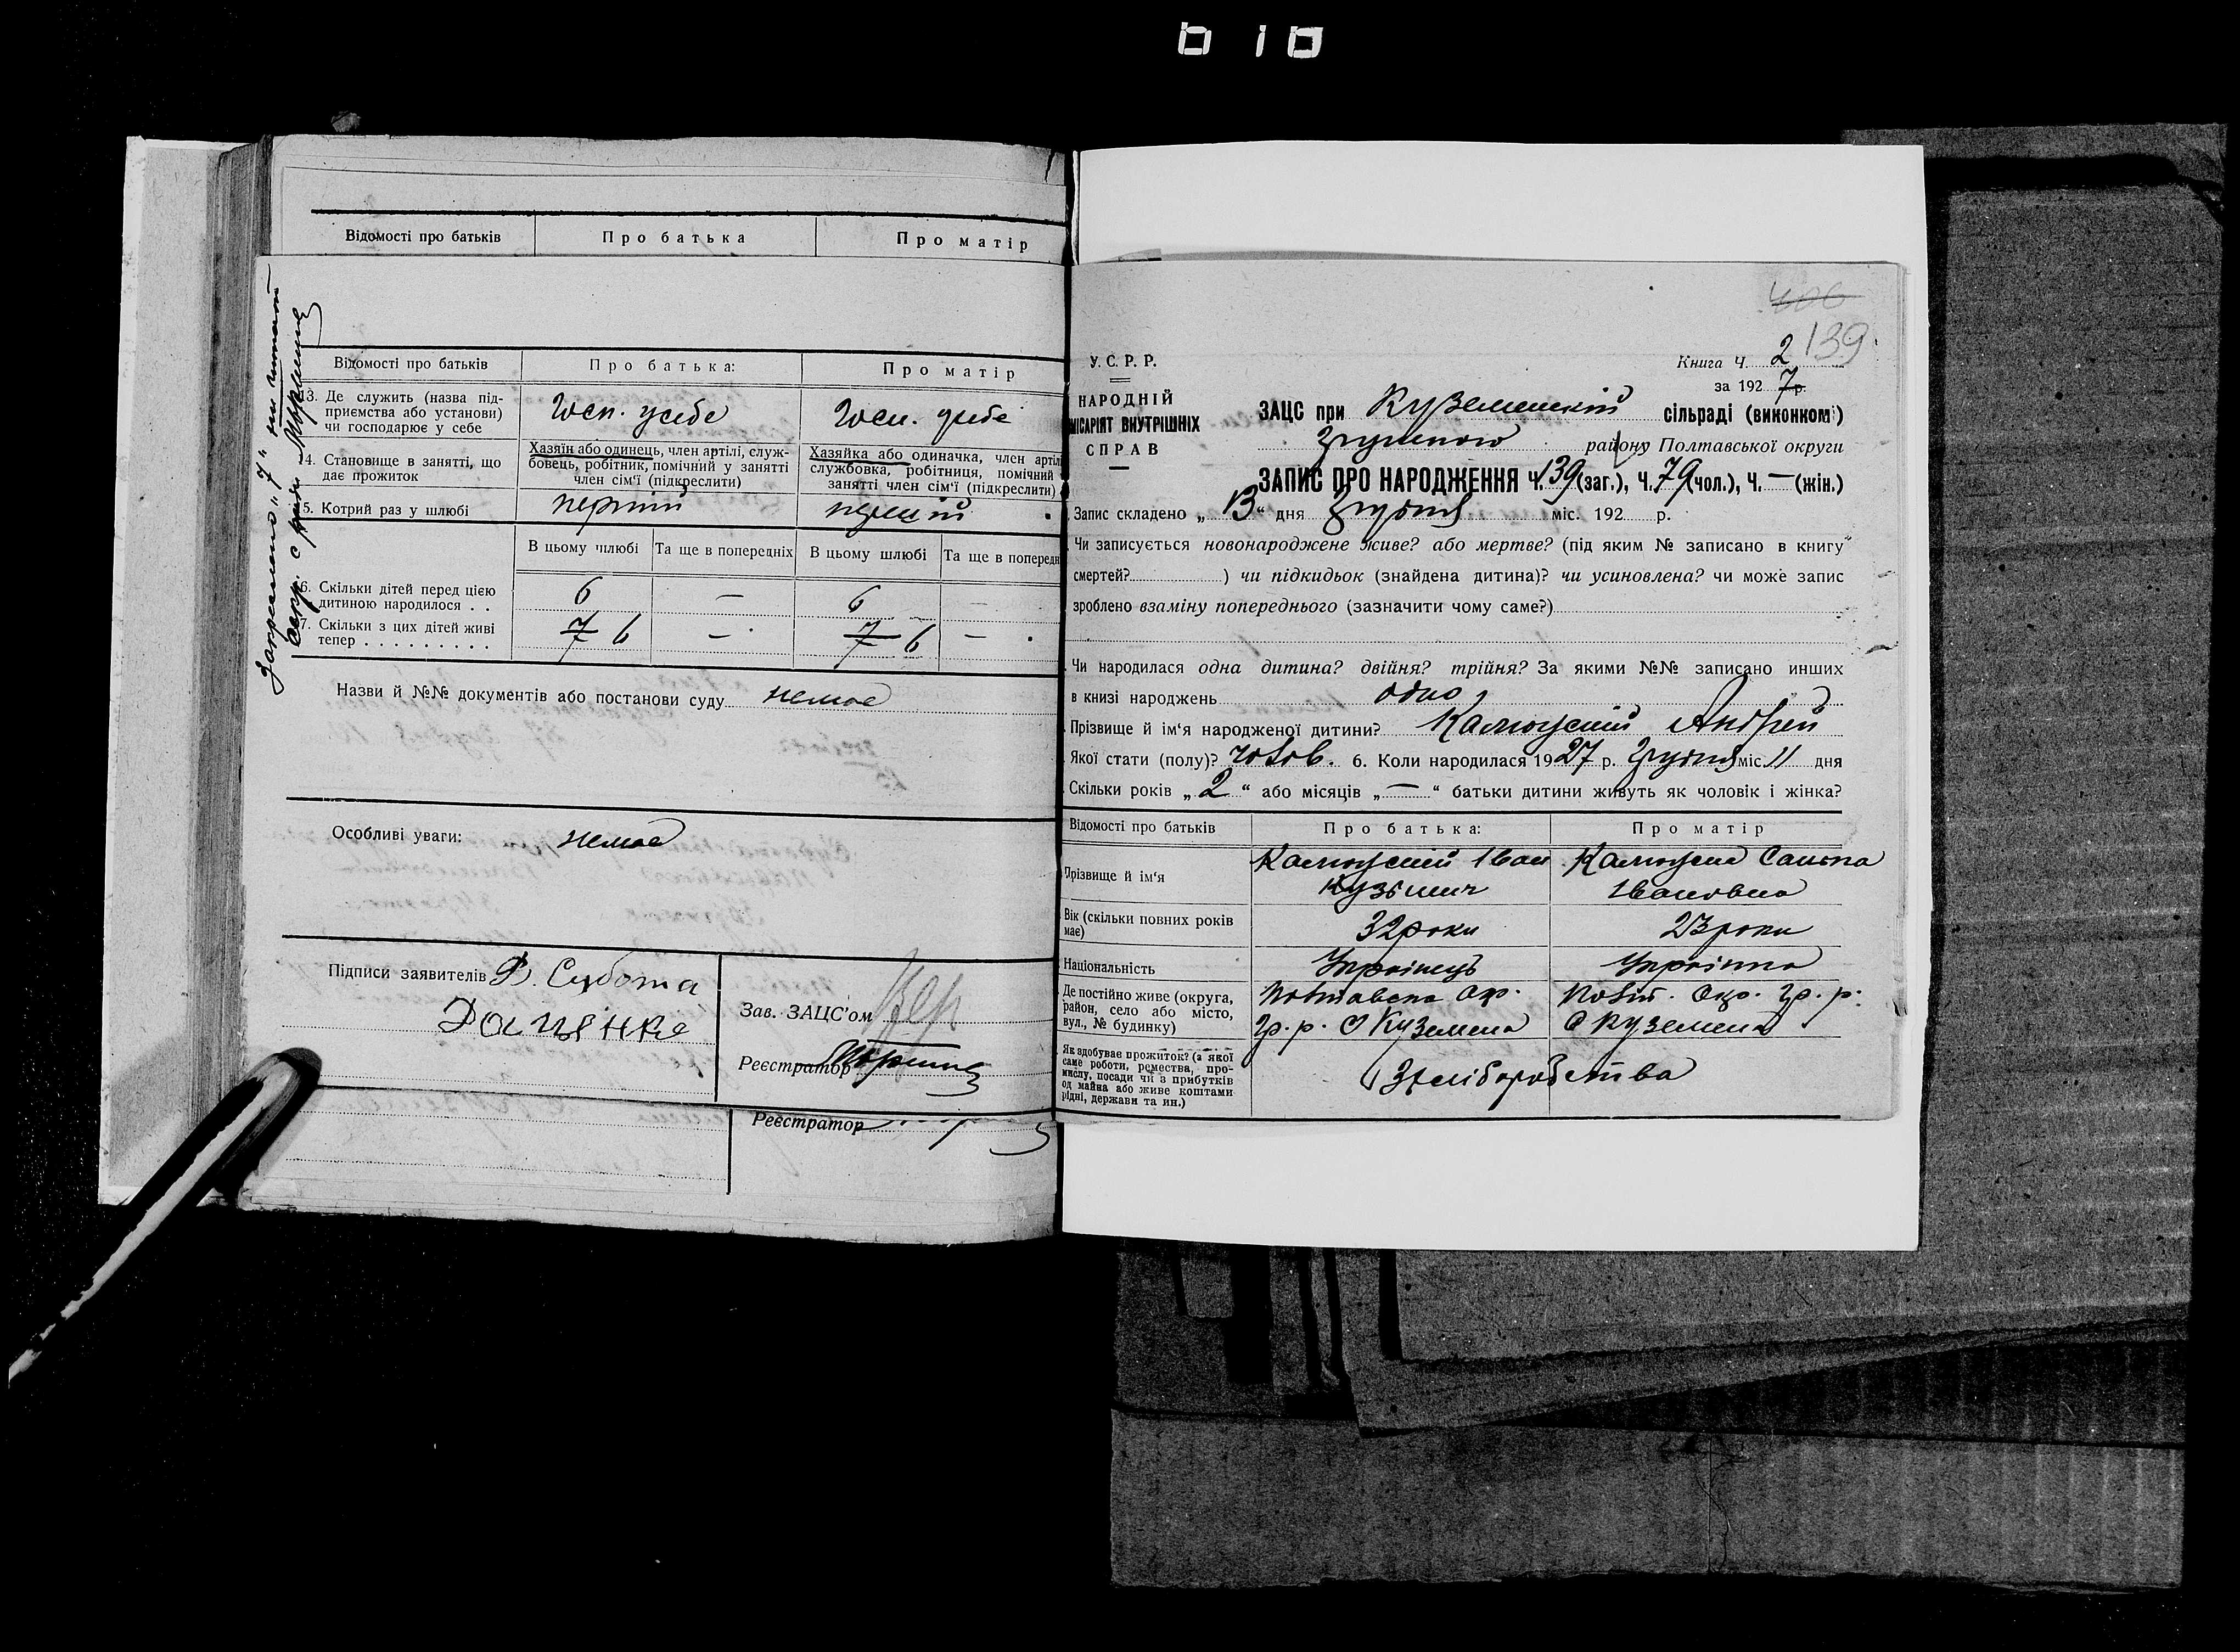 Відомості про батьків Про батька Про матір
Відомості про батьків Про батька: Про матір
3. Де служить (назва під-
приємства або установи)
чи господарює у себе
госп. усебе госп. усебе
14. Становище в занятті, що
дає прожиток
Хазяїн або одинець, член артілі, служ-
бовець, робітник, помічний у занятті
член сім'ї (підкреслити)
Хазяйка або одиначка, член артіл
службовка, робітниця, помічний
занятті член сім'ї (підкреслити)
5. Котрий раз у шлюбі перший перший
В цьому шлюбі Та ще в попередніх В цьому шлюбі Та ще в поперед
6. Скільки дітей перед цією
дитиною народилося . . 6 — 6 —
7. Скільки з цих дітей живі
тепер . . . . . . . . . . 7 6 — 7 6 —
Назви й №№ документів або постанови суду немає
Особливі уваги: немає
Підписи заявителів Ф. Субота
Зав. ЗАЦС'ом
Реєстратор
Реєстратор
406
139
У.С.Р.Р.
Книга Ч. 2
за 192 7 р.
НАРОДНІЙ
МІСАРІЯТ ВНУТРІШНІХ
СПРАВ
ЗАЦС при Куземенській сільраді (виконком)
району Полтавської округи
ЗАПИС ПРО НАРОДЖЕННЯ Ч. 139 (заг.), Ч. 79 (чол.), Ч. — (жін.)
Запис складено „ 13 “ дня Грудня міс. 192 р.
Чи записується новонароджене живе? або мертве? (під яким № записано в книгу
смертей? ) чи підкидьок (знайдена дитина)? чи усиновлена? чи може запис
зроблено взаміну попереднього (зазначити чому саме?)
Чи народилася одна дитина? двійня? трійня? За якими №№ записано инших
в книзі народжень одно
Прізвище й ім'я народженої дитини? Андрей
Якої стати (полу)? чолов. 6. Коли народилася 1927 р. Грудня міс. 11 дня
Скільки років „ 2 “ або місяців „ — “ батьки дитини живуть як чоловік і жінка?
Відомості про батьків Про батька: Про матір
Прізвище й ім'я
Іван
Кузьмич
Івановна
Вік (скільки повних років
має)
32 роки 23 роки
Національність Українець Українка
Де постійно живе (округа,
район, село або місто,
вул., № будинку)
Полтавська Окр.
Гр. р. С Куземена
Полт. Окр. Гр. р.
С Куземена
Як здобуває прожиток? (з якої
саме роботи, ремества, про-
мислу, посади чи з прибутків
од майна або живе коштами
рідні, держави та ин.)
З хліборобства